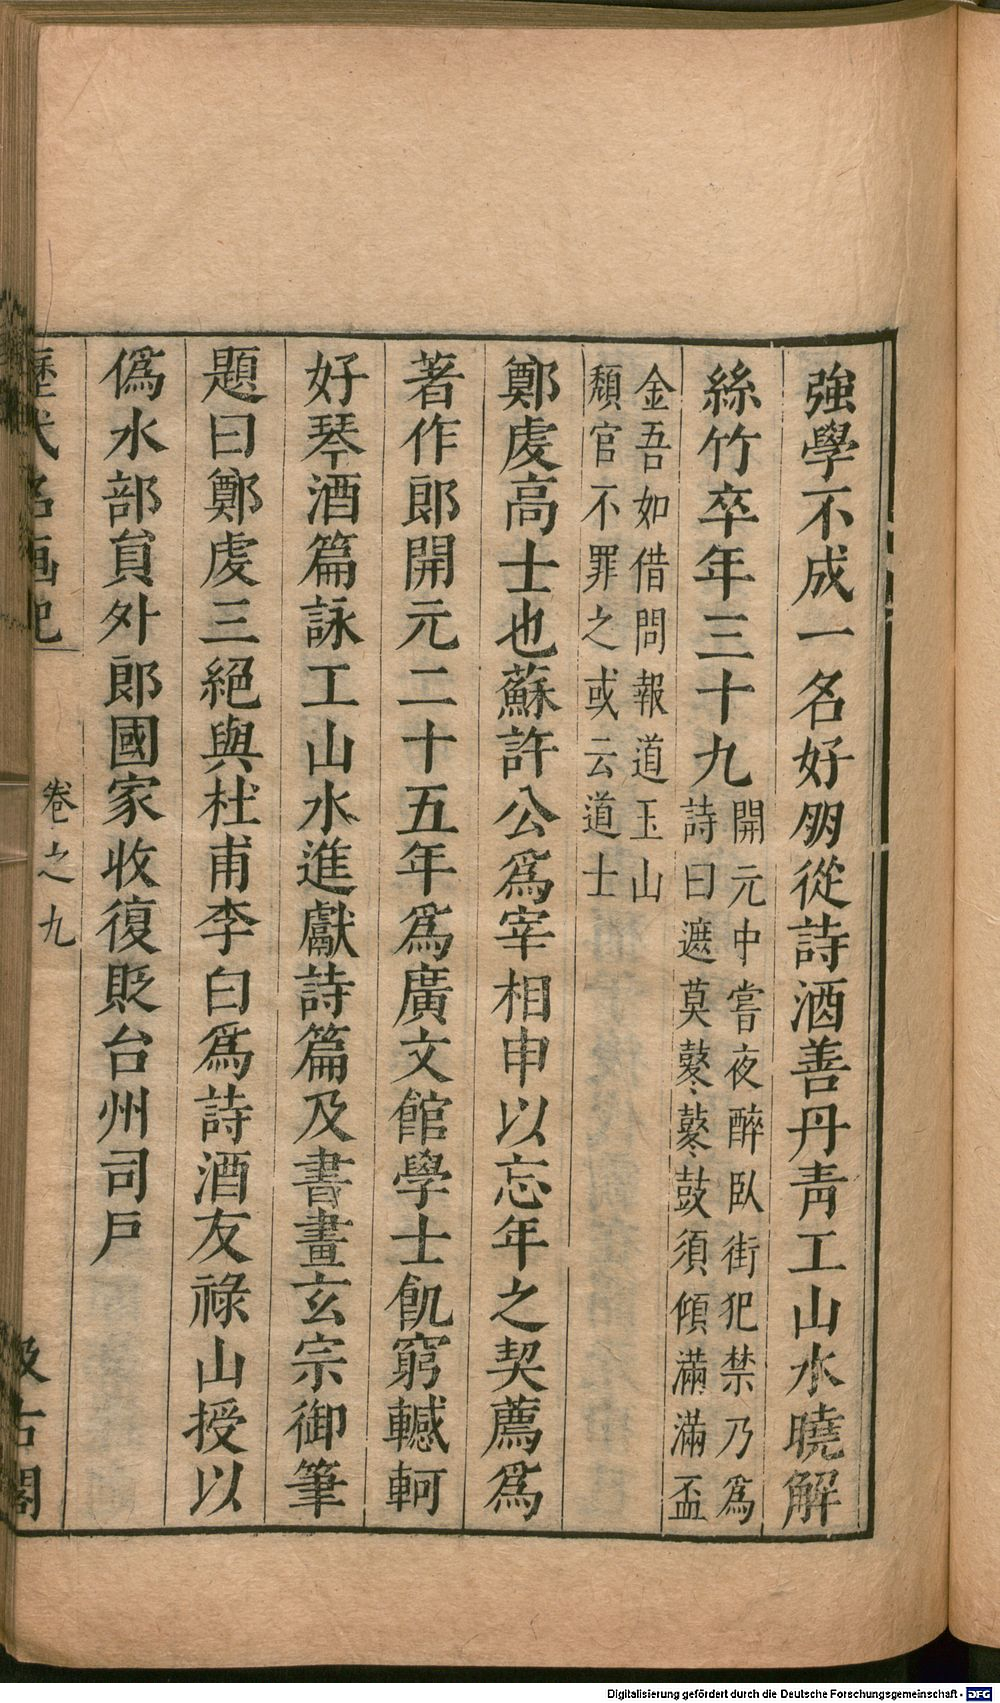 強學不成一名好朋從詩酒善丹青工山水曉解
絲竹卒年三十九
開元中嘗夜醉臥街犯禁乃爲
詩曰遮莫鼕鼕鼓須傾滿滿盃
金吾如借問報道玉山
頹官不罪之或云道士
鄭虔高士也蘇許公爲宰相申以忘年之契薦爲
著作郎開元二十五年爲廣文館學士飢窮轗軻
好琴酒篇詠工山水進獻詩篇及書畫玄宗御筆
題曰鄭虔三絕與杜甫李白爲詩酒友祿山授以
僞水部員外郎國家收復貶台州司戶
歷代名画記 卷之九 汲古閣
Digitalisierung gefördert durch die Deutsche Forschungsgemeinschaft - DFG